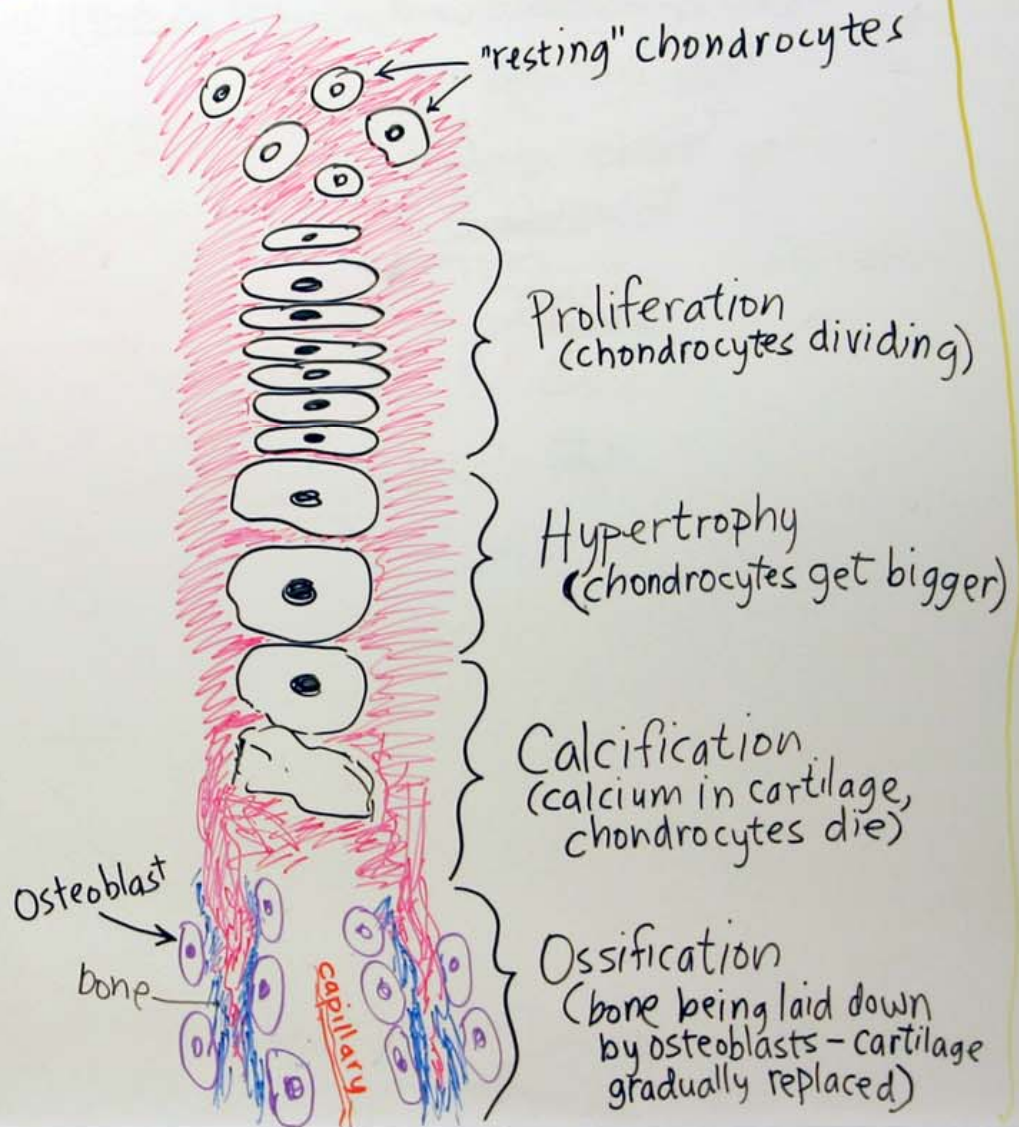 "resting" chondrocytes
Proliferation
(chondrocytes dividing)
Hypertrophy
(chondrocytes get bigger)
Calcification
(calcium in cartilage,
chondrocytes die)
Osteoblast
bone
capillary
Ossification
(bone being laid down
by osteoblasts - cartilage
gradually replaced)